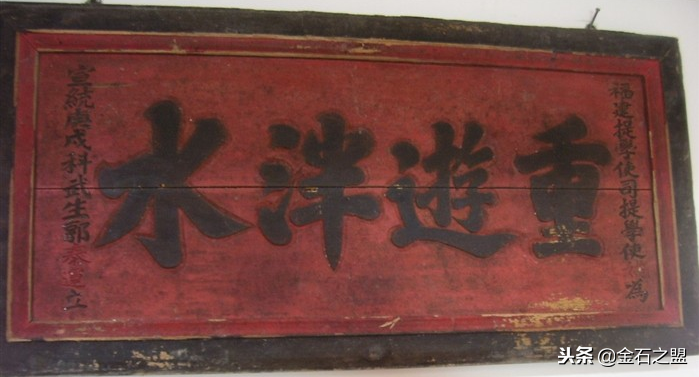 福建提學使司提學使 為
重遊泮水
宣統庚戌科武生郭 立
头条 @金石之盟